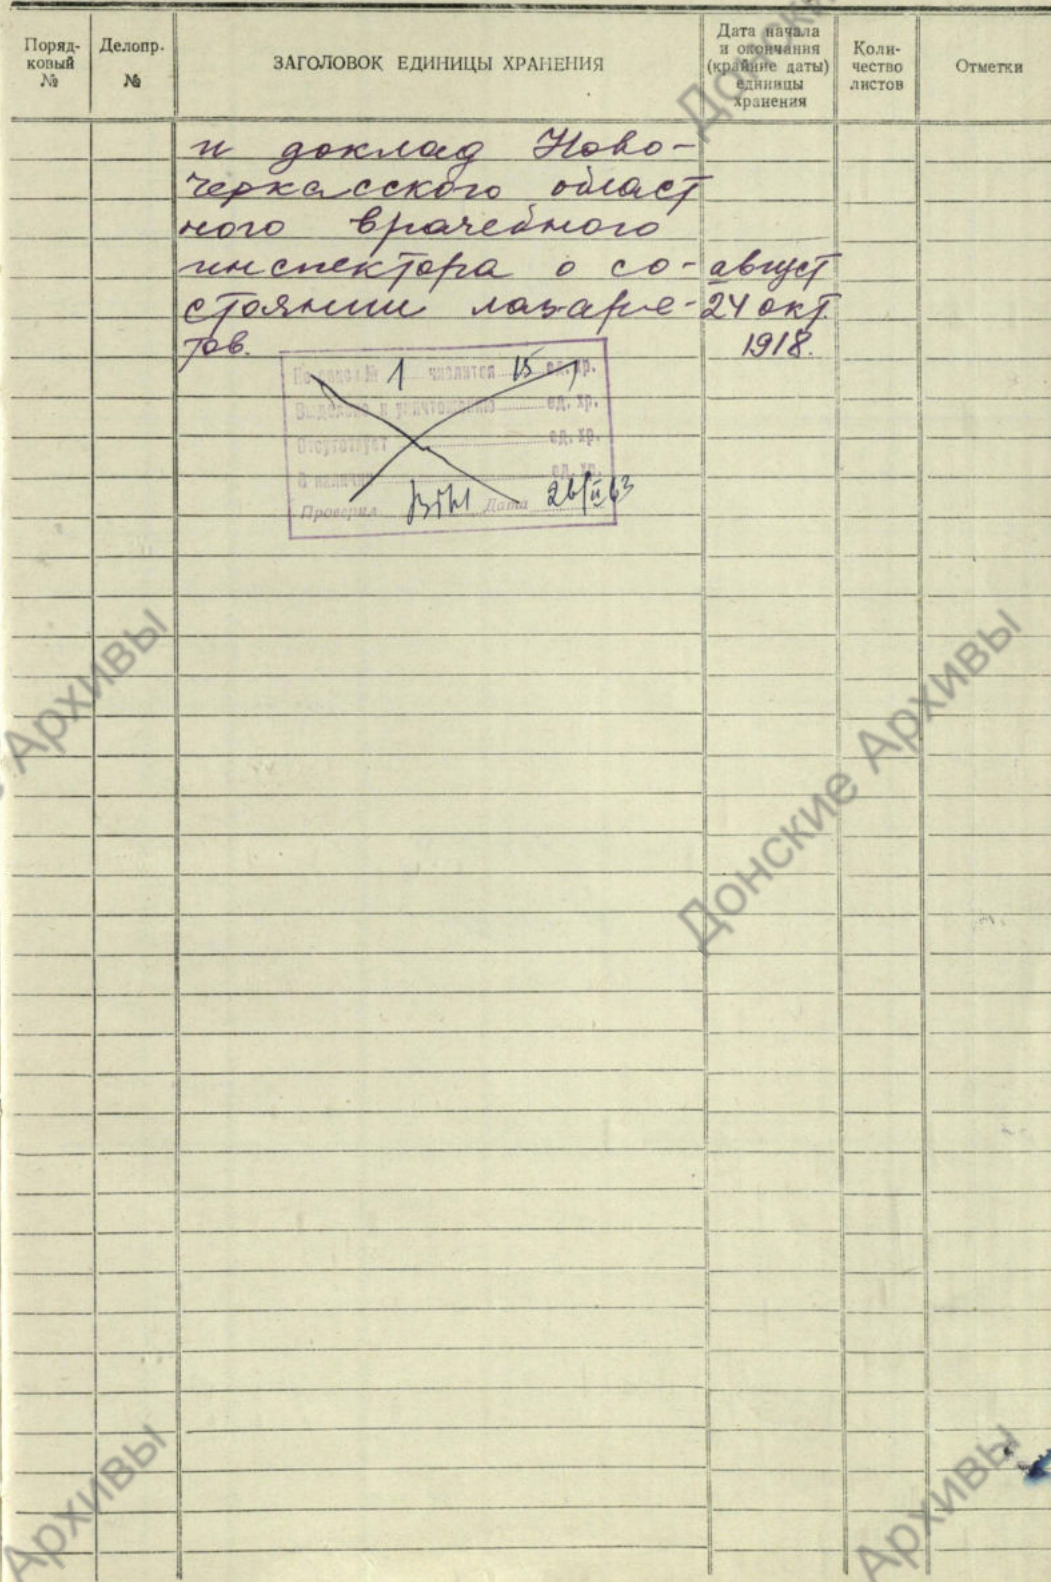 Поряд-
ковый
№
Делопр.
№
ЗАГОЛОВОК ЕДИНИЦЫ ХРАНЕНИЯ
Дата начала
и окончания
(крайние даты)
единицы
хранения
Коли-
чество
листов
Отметки
и доклад Ново-
черкасского област
ного врачебного
инспектора о со- август
стоянии лазаре- 24 окт.
тов. 1918.
По описи № 1 числится 15 ед. хр.
Выделено к уничтожению ед. хр.
Отсутствует ед. хр.
В наличии ед. хр.
Проверил Дата 26/II 63
Донские Архивы
Архивы
Архивы
Архивы